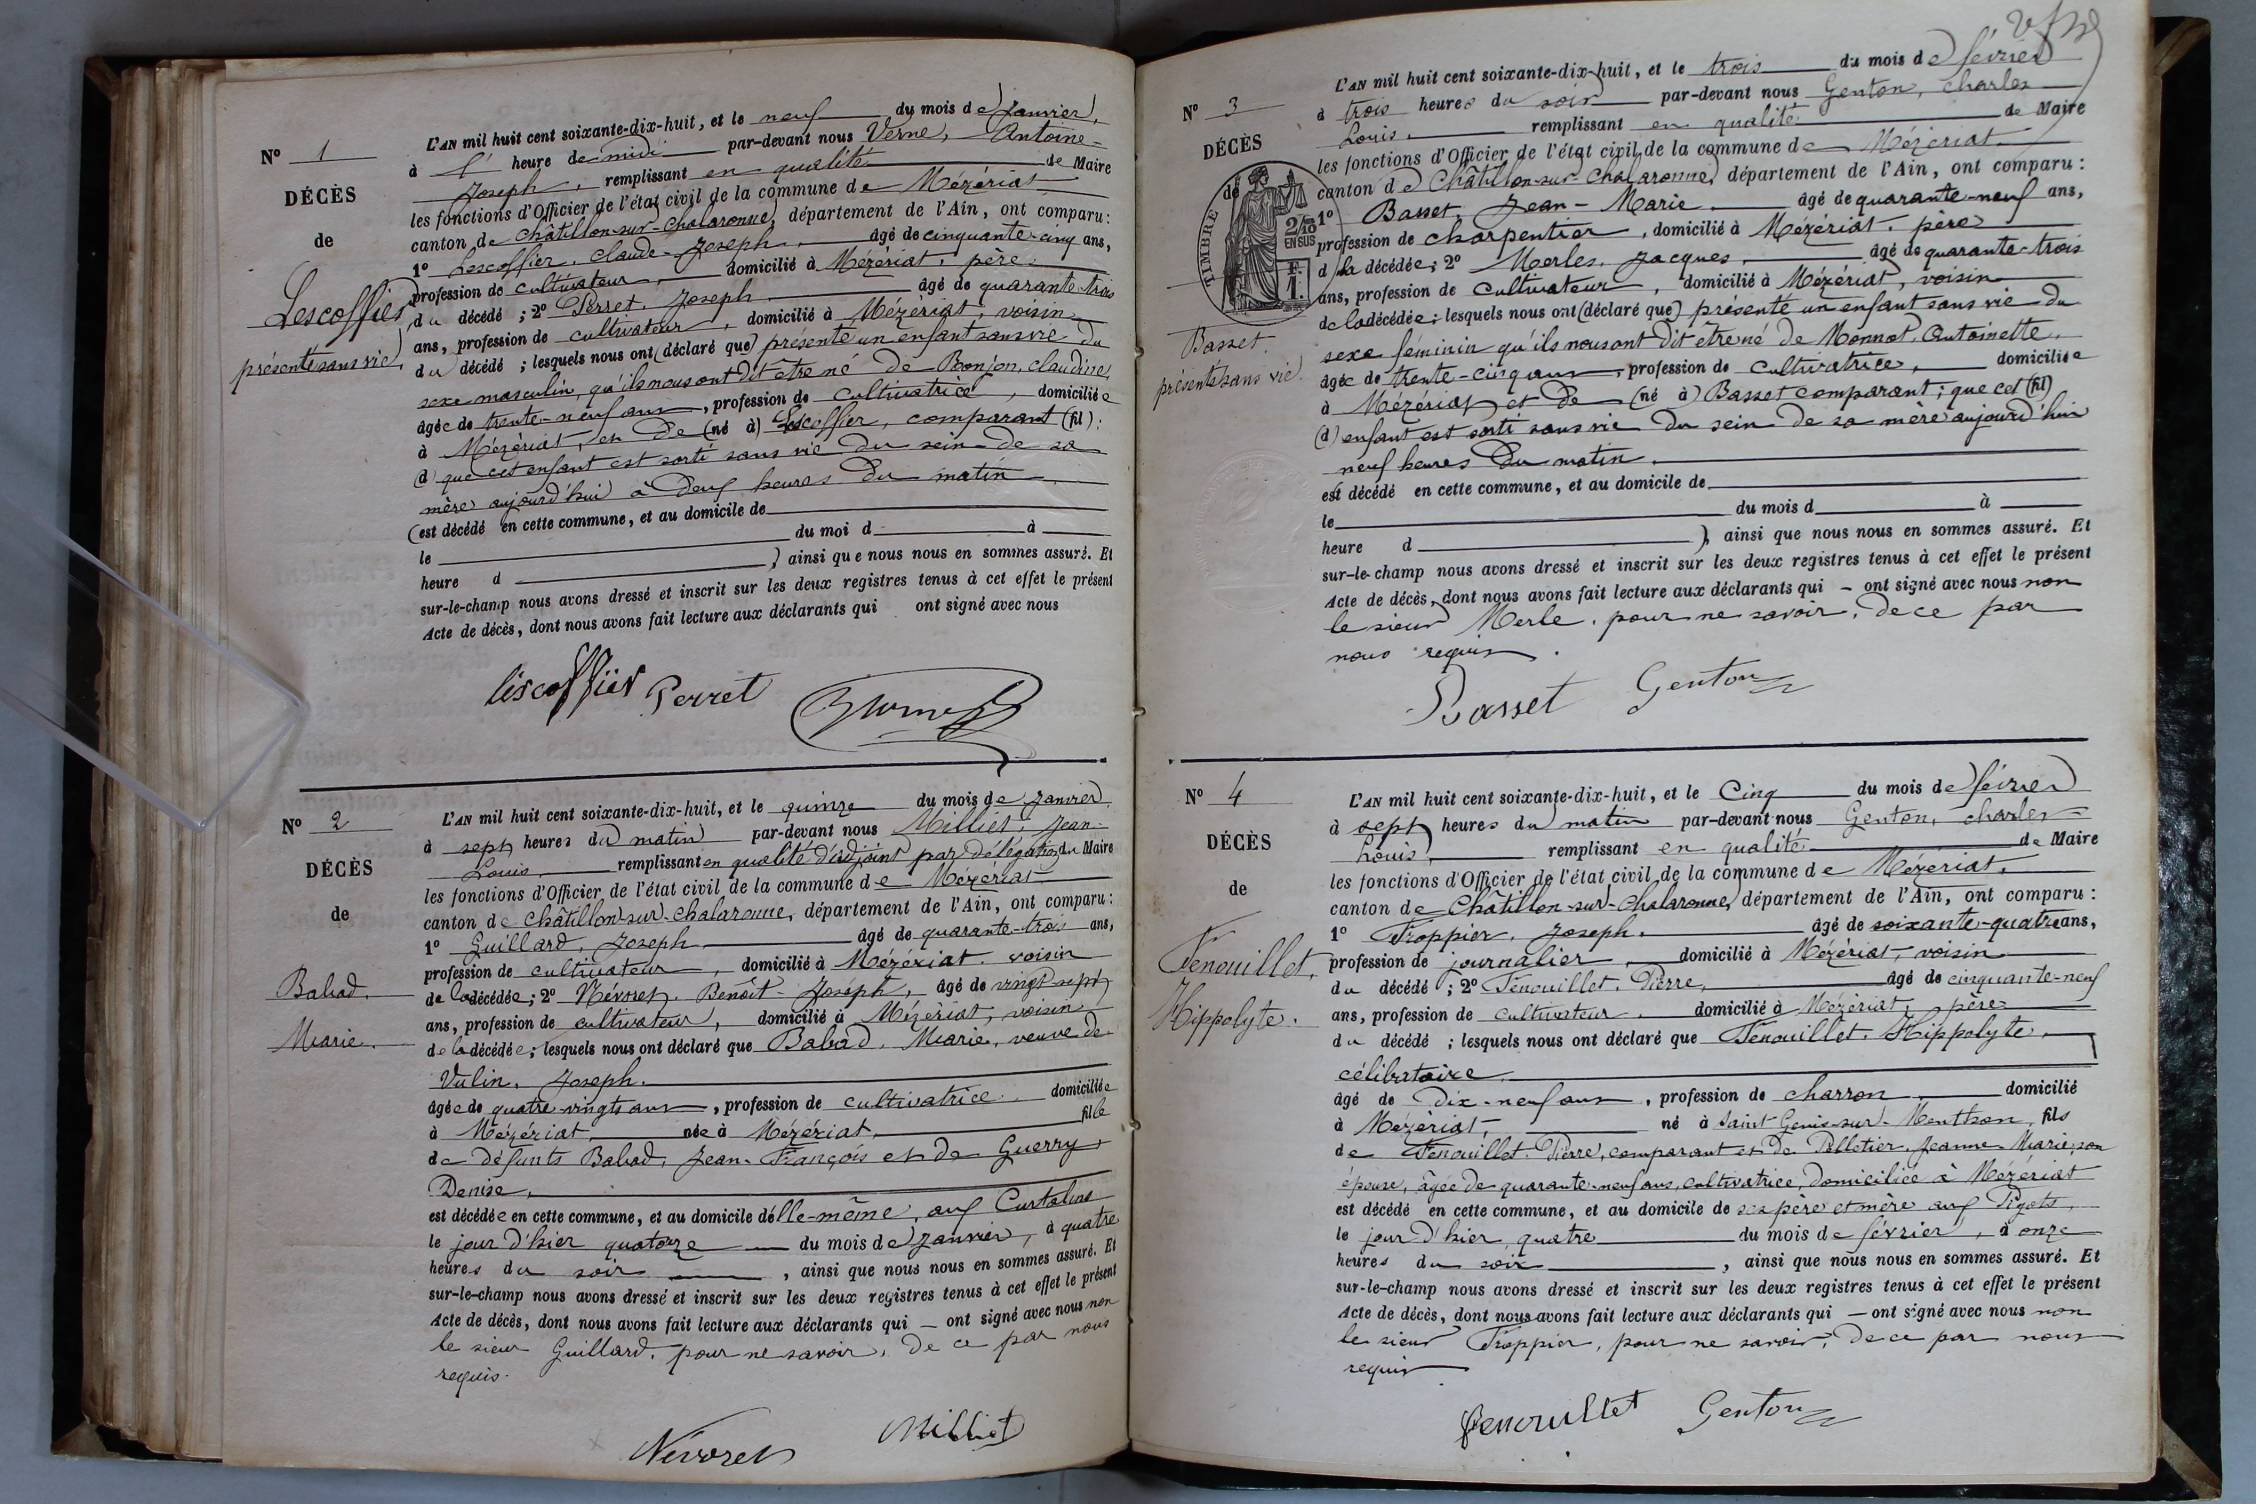 N° 1
DÉCÈS
de
Lescoffier
présenté sans vie
L'AN mil huit cent soixante-dix-huit, et le neuf du mois de Janvier,
à 1 heure de midi par-devant nous Verne, Antoine-
Joseph, remplissant en qualité de Maire
les fonctions d'Officier de l'état civil de la commune de Mézériat
canton de Châtillon-sur-Chalaronne, département de l'Ain, ont comparu :
1° Lescoffier, Claude-Joseph, âgé de cinquante-cinq ans,
profession de cultivateur, domicilié à Mézériat, père
du décédé ; 2° Perret, Joseph, âgé de quarante-trois
ans, profession de cultivateur, domicilié à Mézériat, voisin
du décédé ; lesquels nous ont (déclaré que) présenté un enfant sans vie du
sexe masculin, qu'ils nous ont dit être né de Bonjon, Claudine,
âgée de trente-neuf ans, profession de cultivatrice, domiciliée
à Mézériat, et de (né à) Lescoffier, comparant (fil) :
(d) que cet enfant est sorti sans vie du sein de sa
mère aujourd'hui à deux heures du matin
(est décédé en cette commune, et au domicile de
le du moi d à
heure d ) ainsi que nous nous en sommes assuré. Et
sur-le-champ nous avons dressé et inscrit sur les deux registres tenus à cet effet le présent
Acte de décès, dont nous avons fait lecture aux déclarants qui ont signé avec nous
Lescoffier Perret
N° 2
DÉCÈS
de
Babad.
Marie.
L'AN mil huit cent soixante-dix-huit, et le quinze du mois de Janvier
à sept heures du matin par-devant nous Milliet, Jean-
Louis, remplissant en qualité d'adjoint par délégation du Maire
les fonctions d'Officier de l'état civil de la commune de Mézériat
canton de Châtillon-sur-Chalaronne, département de l'Ain, ont comparu :
1° Guillard, Joseph, âgé de quarante-trois ans,
profession de cultivateur, domicilié à Mézériat, voisin
de la décédée ; 2° Névoret, Benoît-Joseph, âgé de vingt-sept
ans, profession de cultivateur, domicilié à Mézériat, voisin
de la décédée ; lesquels nous ont déclaré que Babad, Marie, veuve de
Vulin, Joseph.
âgée de quatre-vingts ans, profession de cultivatrice domiciliée
à Mézériat, née à Mézériat, fille
de défunts Babad, Jean-François et de Guerry,
Denise,
est décédée en cette commune, et au domicile d'elle-même, aux Curtalins
le jour d'hier quatorze du mois de Janvier, à quatre
heures du soir, ainsi que nous nous en sommes assuré. Et
sur-le-champ nous avons dressé et inscrit sur les deux registres tenus à cet effet le présent
Acte de décès, dont nous avons fait lecture aux déclarants qui — ont signé avec nous non
le sieur Guillard, pour ne savoir, de ce par nous
requis.
Névoret Milliet
N° 3
DÉCÈS
de
TIMBRE
2/10
EN SUS
F.
1.
Basset.
présenté sans vie
L'AN mil huit cent soixante-dix-huit, et le trois du mois de février
à trois heures du soir par-devant nous Genton, Charles
Louis, remplissant en qualité de Maire
les fonctions d'Officier de l'état civil de la commune de Mézériat
canton de Châtillon-sur-Chalaronne, département de l'Ain, ont comparu :
1° Basset, Jean-Marie, âgé de quarante-neuf ans,
profession de charpentier, domicilié à Mézériat, père
d la décédée ; 2° Merles, Jacques, âgé de quarante-trois
ans, profession de cultivateur, domicilié à Mézériat, voisin
de la décédée ; lesquels nous ont (déclaré que) présenté un enfant sans vie du
sexe féminin qu'ils nous ont dit être né de Monnet, Antoinette,
âgée de trente-cinq ans, profession de cultivatrice, domiciliée
à Mézériat et de (né à) Basset comparant ; que cet (fil)
(d) enfant est sorti sans vie du sein de sa mère aujourd'hui
neuf heures du matin.
est décédé en cette commune, et au domicile de
le du mois d à
heure d ), ainsi que nous nous en sommes assuré. Et
sur-le-champ nous avons dressé et inscrit sur les deux registres tenus à cet effet le présent
Acte de décès, dont nous avons fait lecture aux déclarants qui — ont signé avec nous non
le sieur Merle, pour ne savoir, de ce par
nous requis.
Basset Genton
N° 4
DÉCÈS
de
Fenouillet,
Hippolyte.
L'AN mil huit cent soixante-dix-huit, et le cinq du mois de février
à sept heures du matin par-devant nous Genton, Charles-
Louis, remplissant en qualité de Maire
les fonctions d'Officier de l'état civil de la commune de Mézériat,
canton de Châtillon-sur-Chalaronne, département de l'Ain, ont comparu :
1° Froppier, Joseph, âgé de soixante-quatre ans,
profession de journalier, domicilié à Mézériat, voisin
du décédé ; 2° Fenouillet, Pierre, âgé de cinquante-neuf
ans, profession de cultivateur, domicilié à Mézériat, père
du décédé ; lesquels nous ont déclaré que Fenouillet, Hippolyte,
célibataire,
âgé de dix-neuf ans, profession de charron domicilié
à Mézériat, né à Saint Genis-sur-Menthon, fils
de Fenouillet, Pierre, comparant et de Pelletier, Jeanne Marie, son
épouse, âgée de quarante-neuf ans, cultivatrice, domiciliée à Mézériat
est décédé en cette commune, et au domicile de ses père et mère aux Pigots,
le jour d'hier, quatre du mois de février, à onze
heures du soir, ainsi que nous nous en sommes assuré. Et
sur-le-champ nous avons dressé et inscrit sur les deux registres tenus à cet effet le présent
Acte de décès, dont nous avons fait lecture aux déclarants qui — ont signé avec nous non
le sieur Froppier, pour ne savoir, de ce par nous
requis
Fenouillet Genton